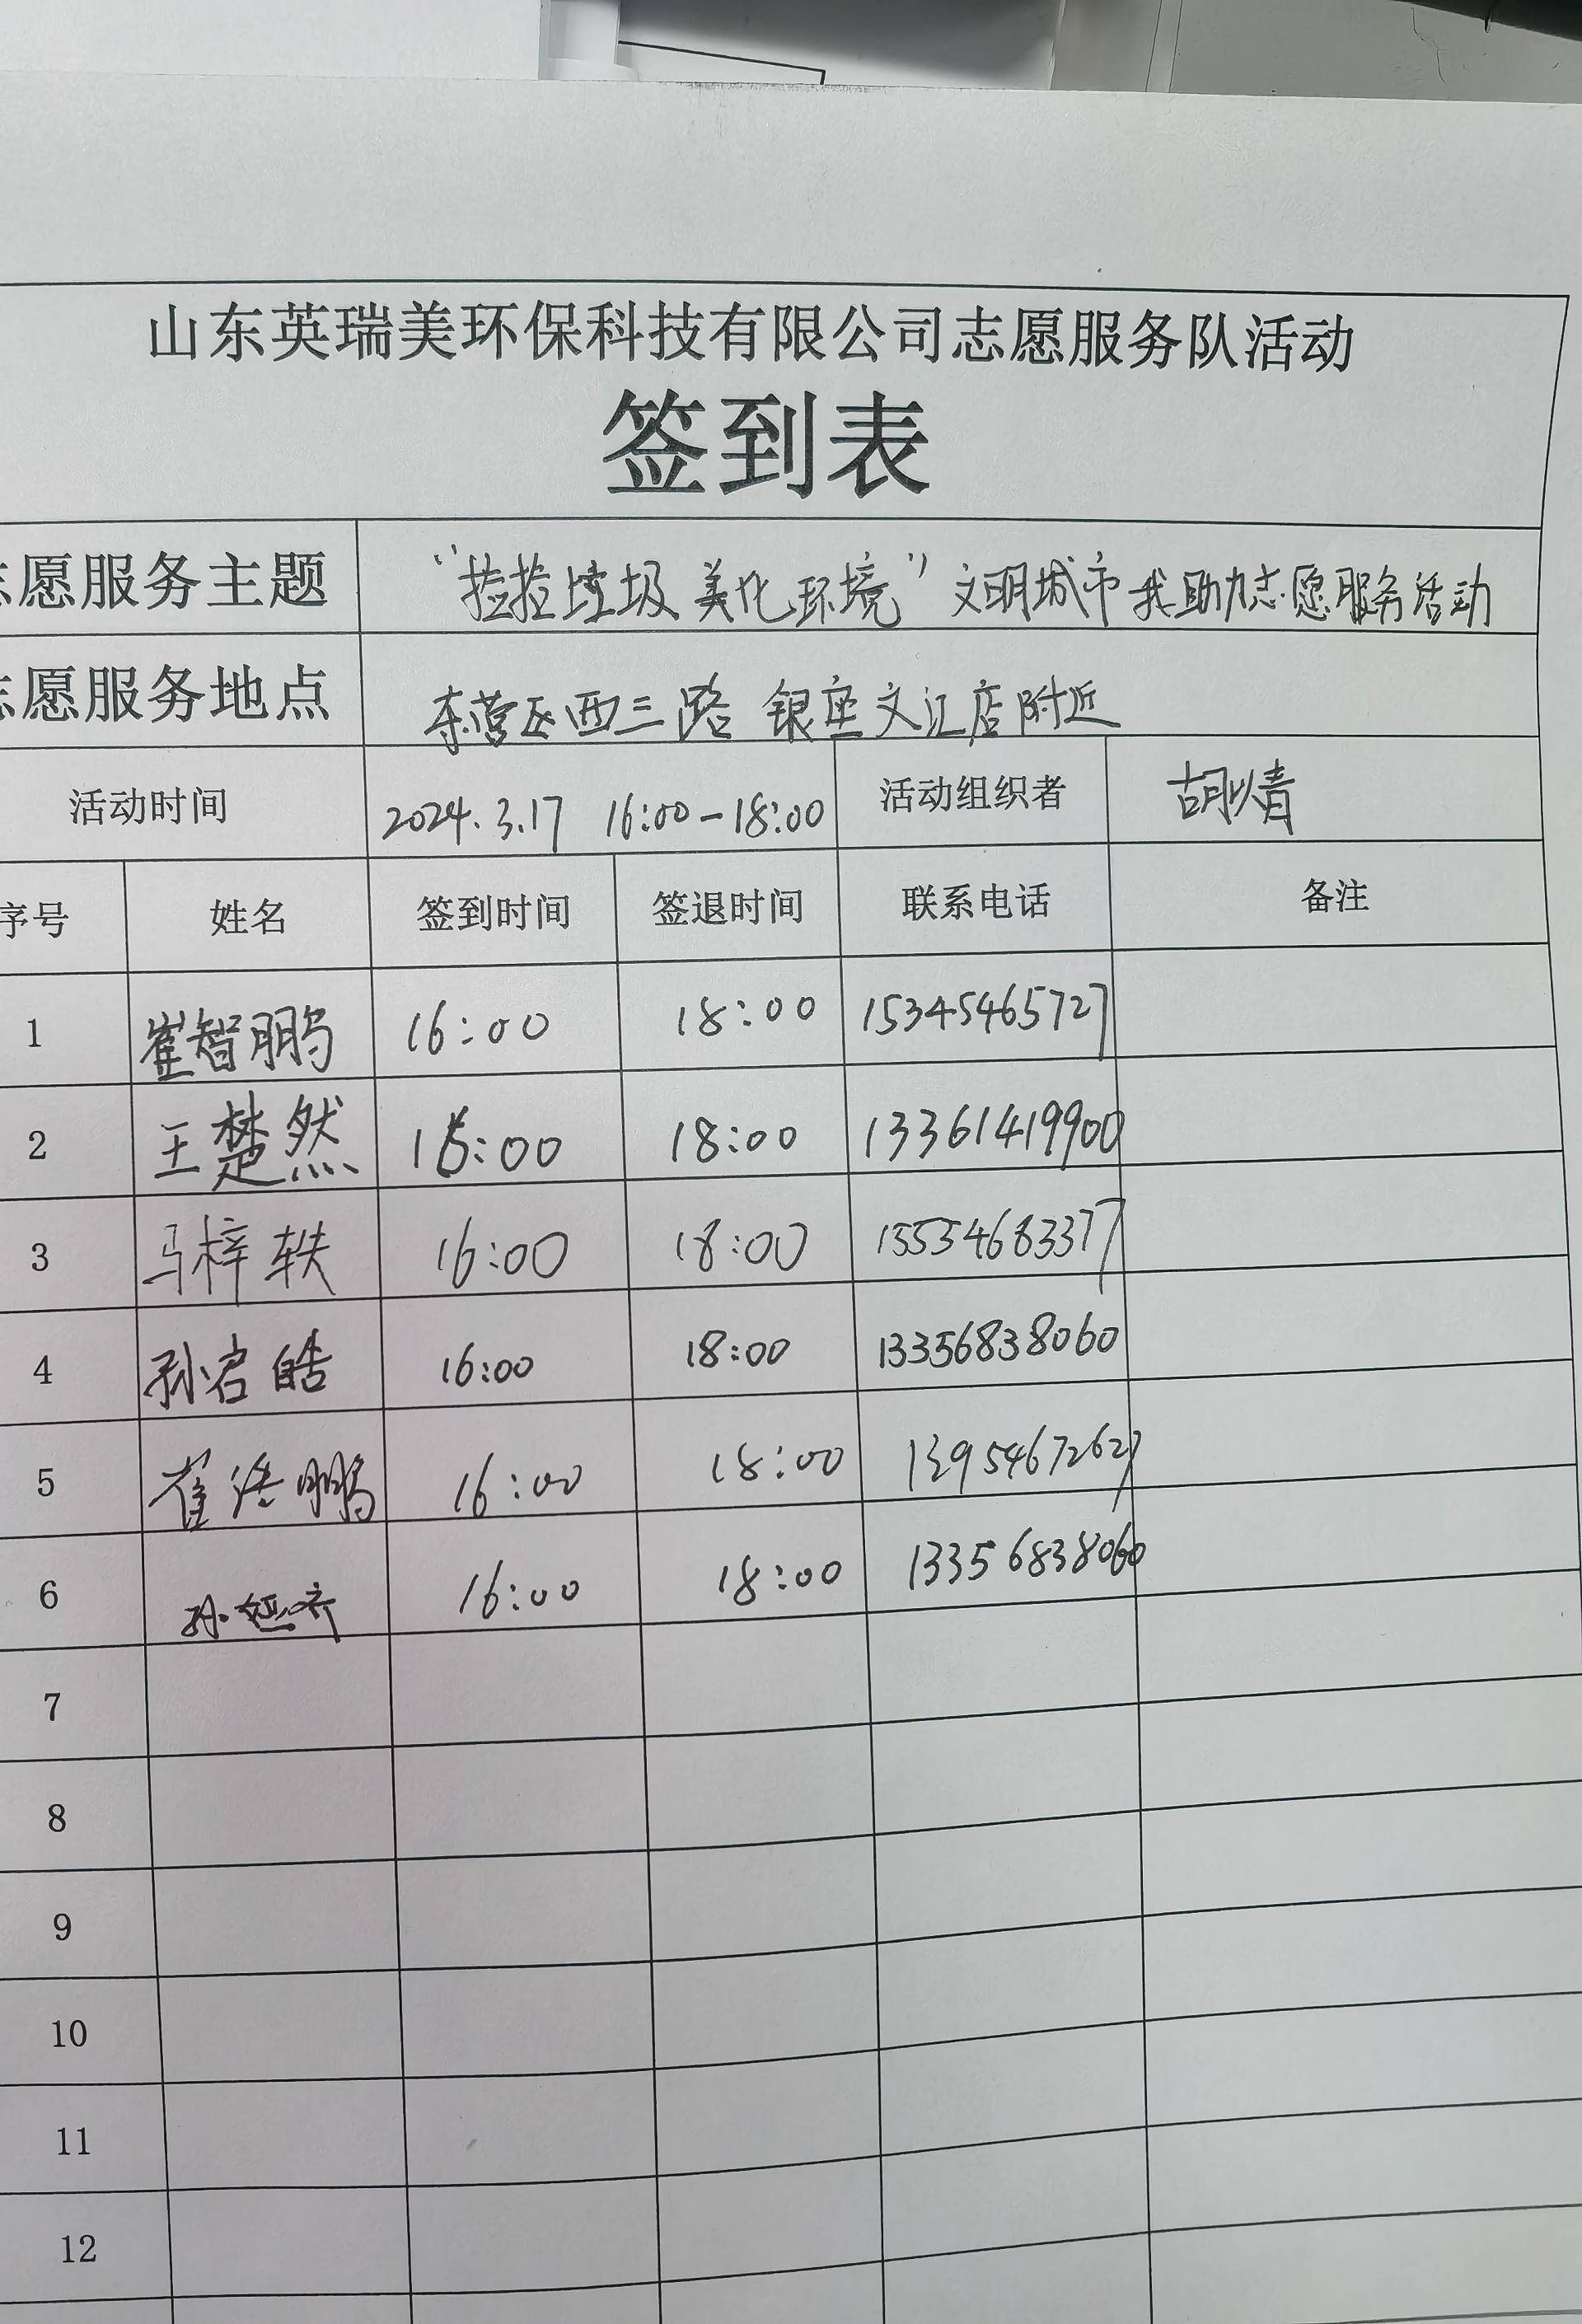 山东英瑞美环保科技有限公司志愿服务队活动
签到表
志愿服务主题 "捡捡垃圾 美化环境"文明城市我助力志愿服务活动
志愿服务地点 东营区西三路 银座文汇店附近
活动时间 2024.3.17 16:00-18:00 活动组织者 胡以青
序号 姓名 签到时间 签退时间 联系电话 备注
1 崔智鹏 16:00 18:00 15345465727
2 王楚然 16:00 18:00 13361419900
3 马梓轶 16:00 18:00 15554683377
4 孙启皓 16:00 18:00 13356838060
5 崔浩鹏 16:00 18:00 13954672627
6 孙 16:00 18:00 13356838060
7
8
9
10
11
12